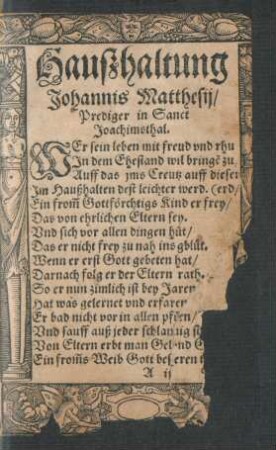 Haußhaltung
Johannis Matthesij/
Prediger in Sanct
Joachimsthal.
WEr sein leben mit freud vnd rhu
In dem Ehestand wil bringē zu
Auff das jms Creutz auff dieser
Im Haußhalten dest leichter werd. (erd/
Ein from̄ Gottförchtigs Kind er frey/
Das von ehrlichen Eltern sey.
Vnd sich vor allen dingen hüt/
Das er nicht frey zu nah ins glüt.
Wenn er erst Gott gebeten hat/
Darnach folg er der Eltern rath.
So er nun zimlich ist bey Jaren
Hat was gelernet vnd erfaren
Er bad nicht vor in allen
Vnd sauff auß jeder
Von Eltern erbt man Gel nd G
Ein from̄s Weib Gott be eren
A ij